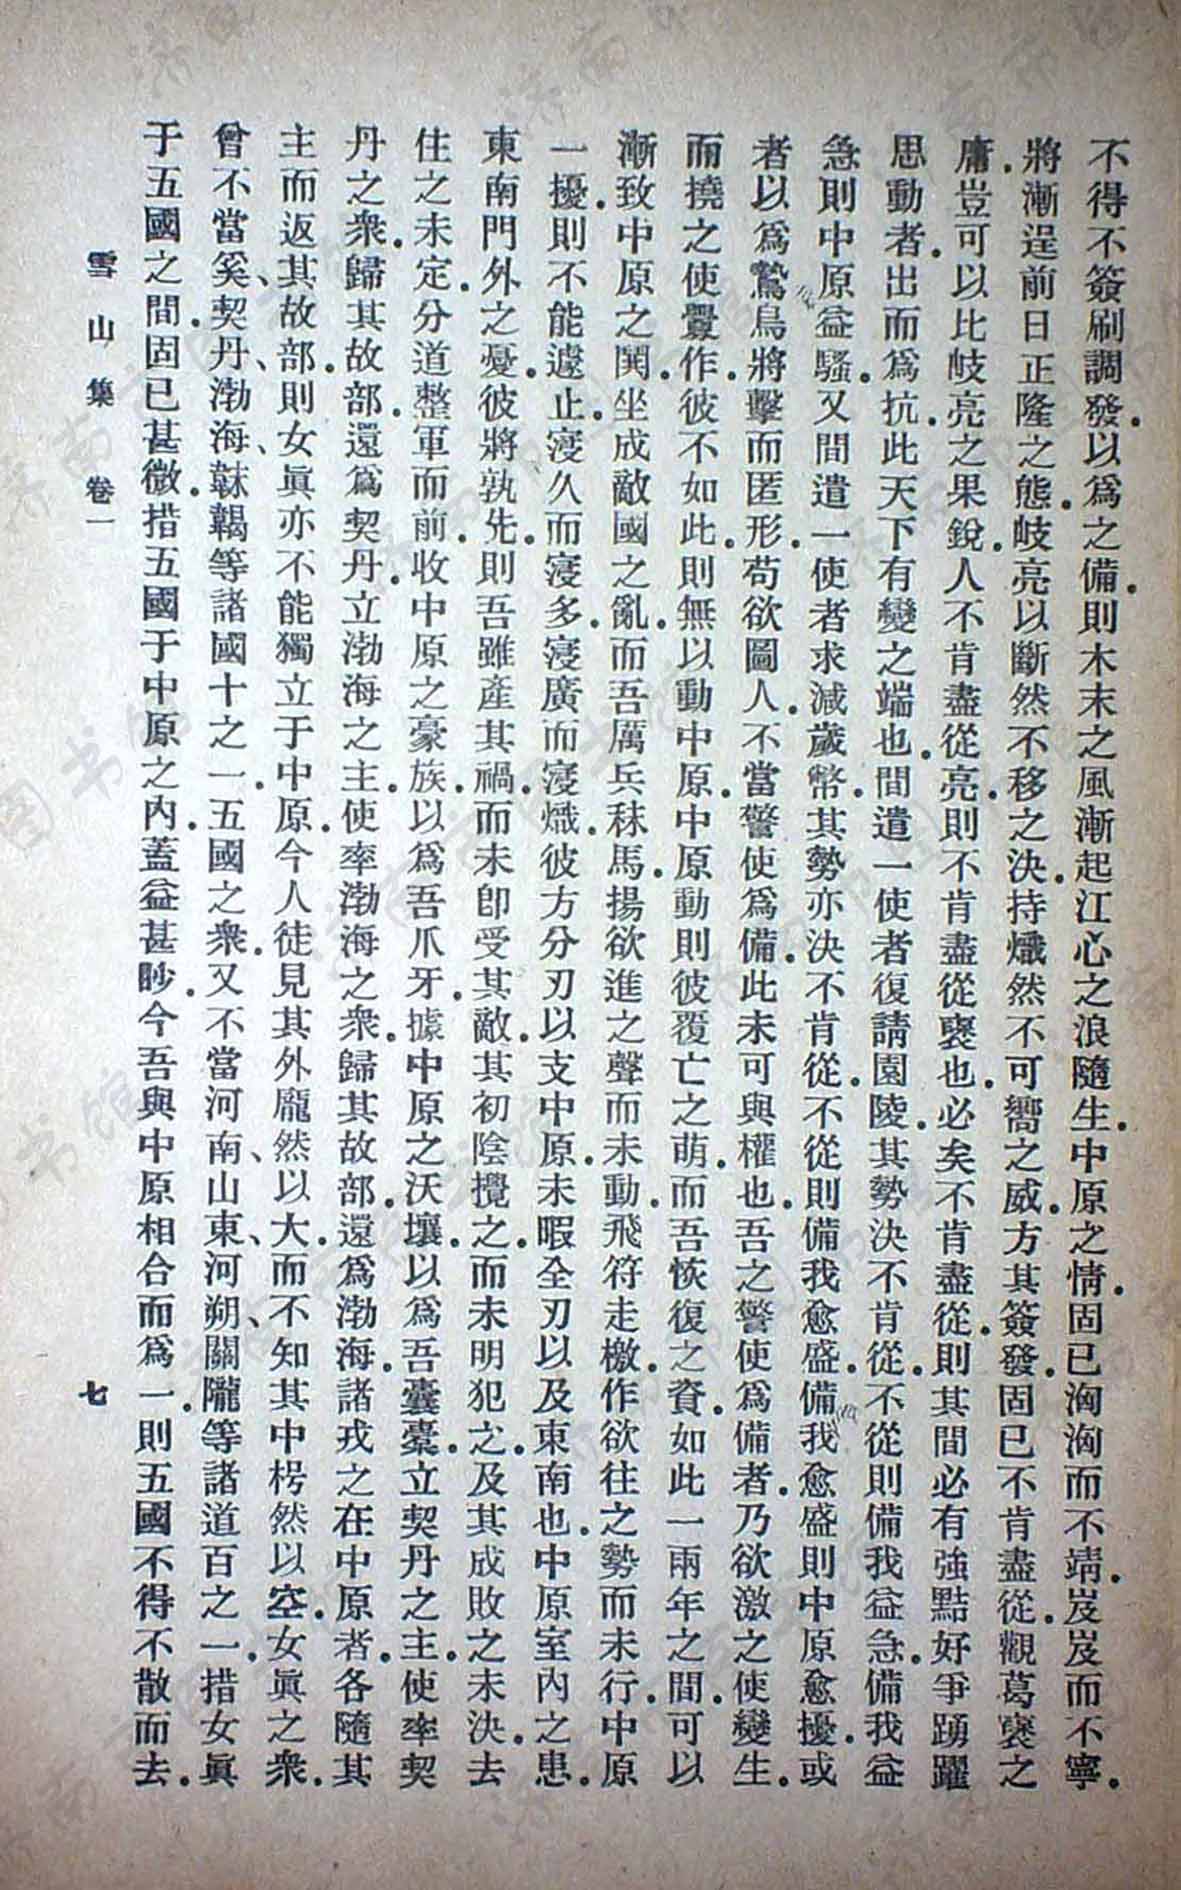 不得不簽刷調發。以爲之備。則木末之風漸起江心之浪隨生。中原之情。固已洶洶而不靖。岌岌而不寧。
將漸逞前日正隆之態。岐亮以斷然不移之決。持熾然不可嚮之威。方其簽發。固已不肯盡從。觀葛襃之
庸。豈可以比岐亮之果銳。人不肯盡從亮。則不肯盡從襃也。必矣不肯盡從。則其間必有強黠好爭踴躍
思動者。出而爲抗。此天下有變之端也。間遣一使者復請園陵。其勢決不肯從。不從則備我益急。備我益
急則中原益騷。又間遣一使者求減歲幣。其勢亦決不肯從。不從則備我愈盛。備我愈盛則中原愈擾。或
者以爲鷙鳥將擊而匿形。苟欲圖人。不當警使爲備。此未可與權也。吾之警使爲備者。乃欲激之使變生。
而撓之使釁作。彼不如此。則無以動中原。中原動則彼覆亡之萌。而吾恢復之資。如此一兩年之間。可以
漸致中原之鬨。坐成敵國之亂。而吾厲兵秣馬。揚欲進之聲而未動。飛符走檄。作欲往之勢而未行。中原
一擾。則不能遽止。寖久而寖多。寖廣而寖熾。彼方分刃以支中原。未暇全刃以及東南也。中原室內之患。
東南門外之憂。彼將孰先。則吾雖產其禍。而未卽受其敵。其初陰攪之。而未明犯之。及其成敗之未決去
住之未定。分道整軍而前。收中原之豪族。以爲吾爪牙。據中原之沃壤。以爲吾囊橐。立契丹之主。使率契
丹之衆。歸其故部。還爲契丹。立渤海之主。使率渤海之衆。歸其故部。還爲渤海。諸戎之在中原者。各隨其
主而返其故部。則女眞亦不能獨立于中原。今人徒見其外龐然以大。而不知其中枵然以空。女眞之衆。
曾不當奚、契丹、渤海、靺鞨等諸國十之一。五國之衆。又不當河南、山東、河朔、關隴等諸道百之一。措女眞
于五國之間。固已甚微。措五國于中原之內。蓋益甚眇。今吾與中原相合而爲一。則五國不得不散而去。
雪山集 卷一 七